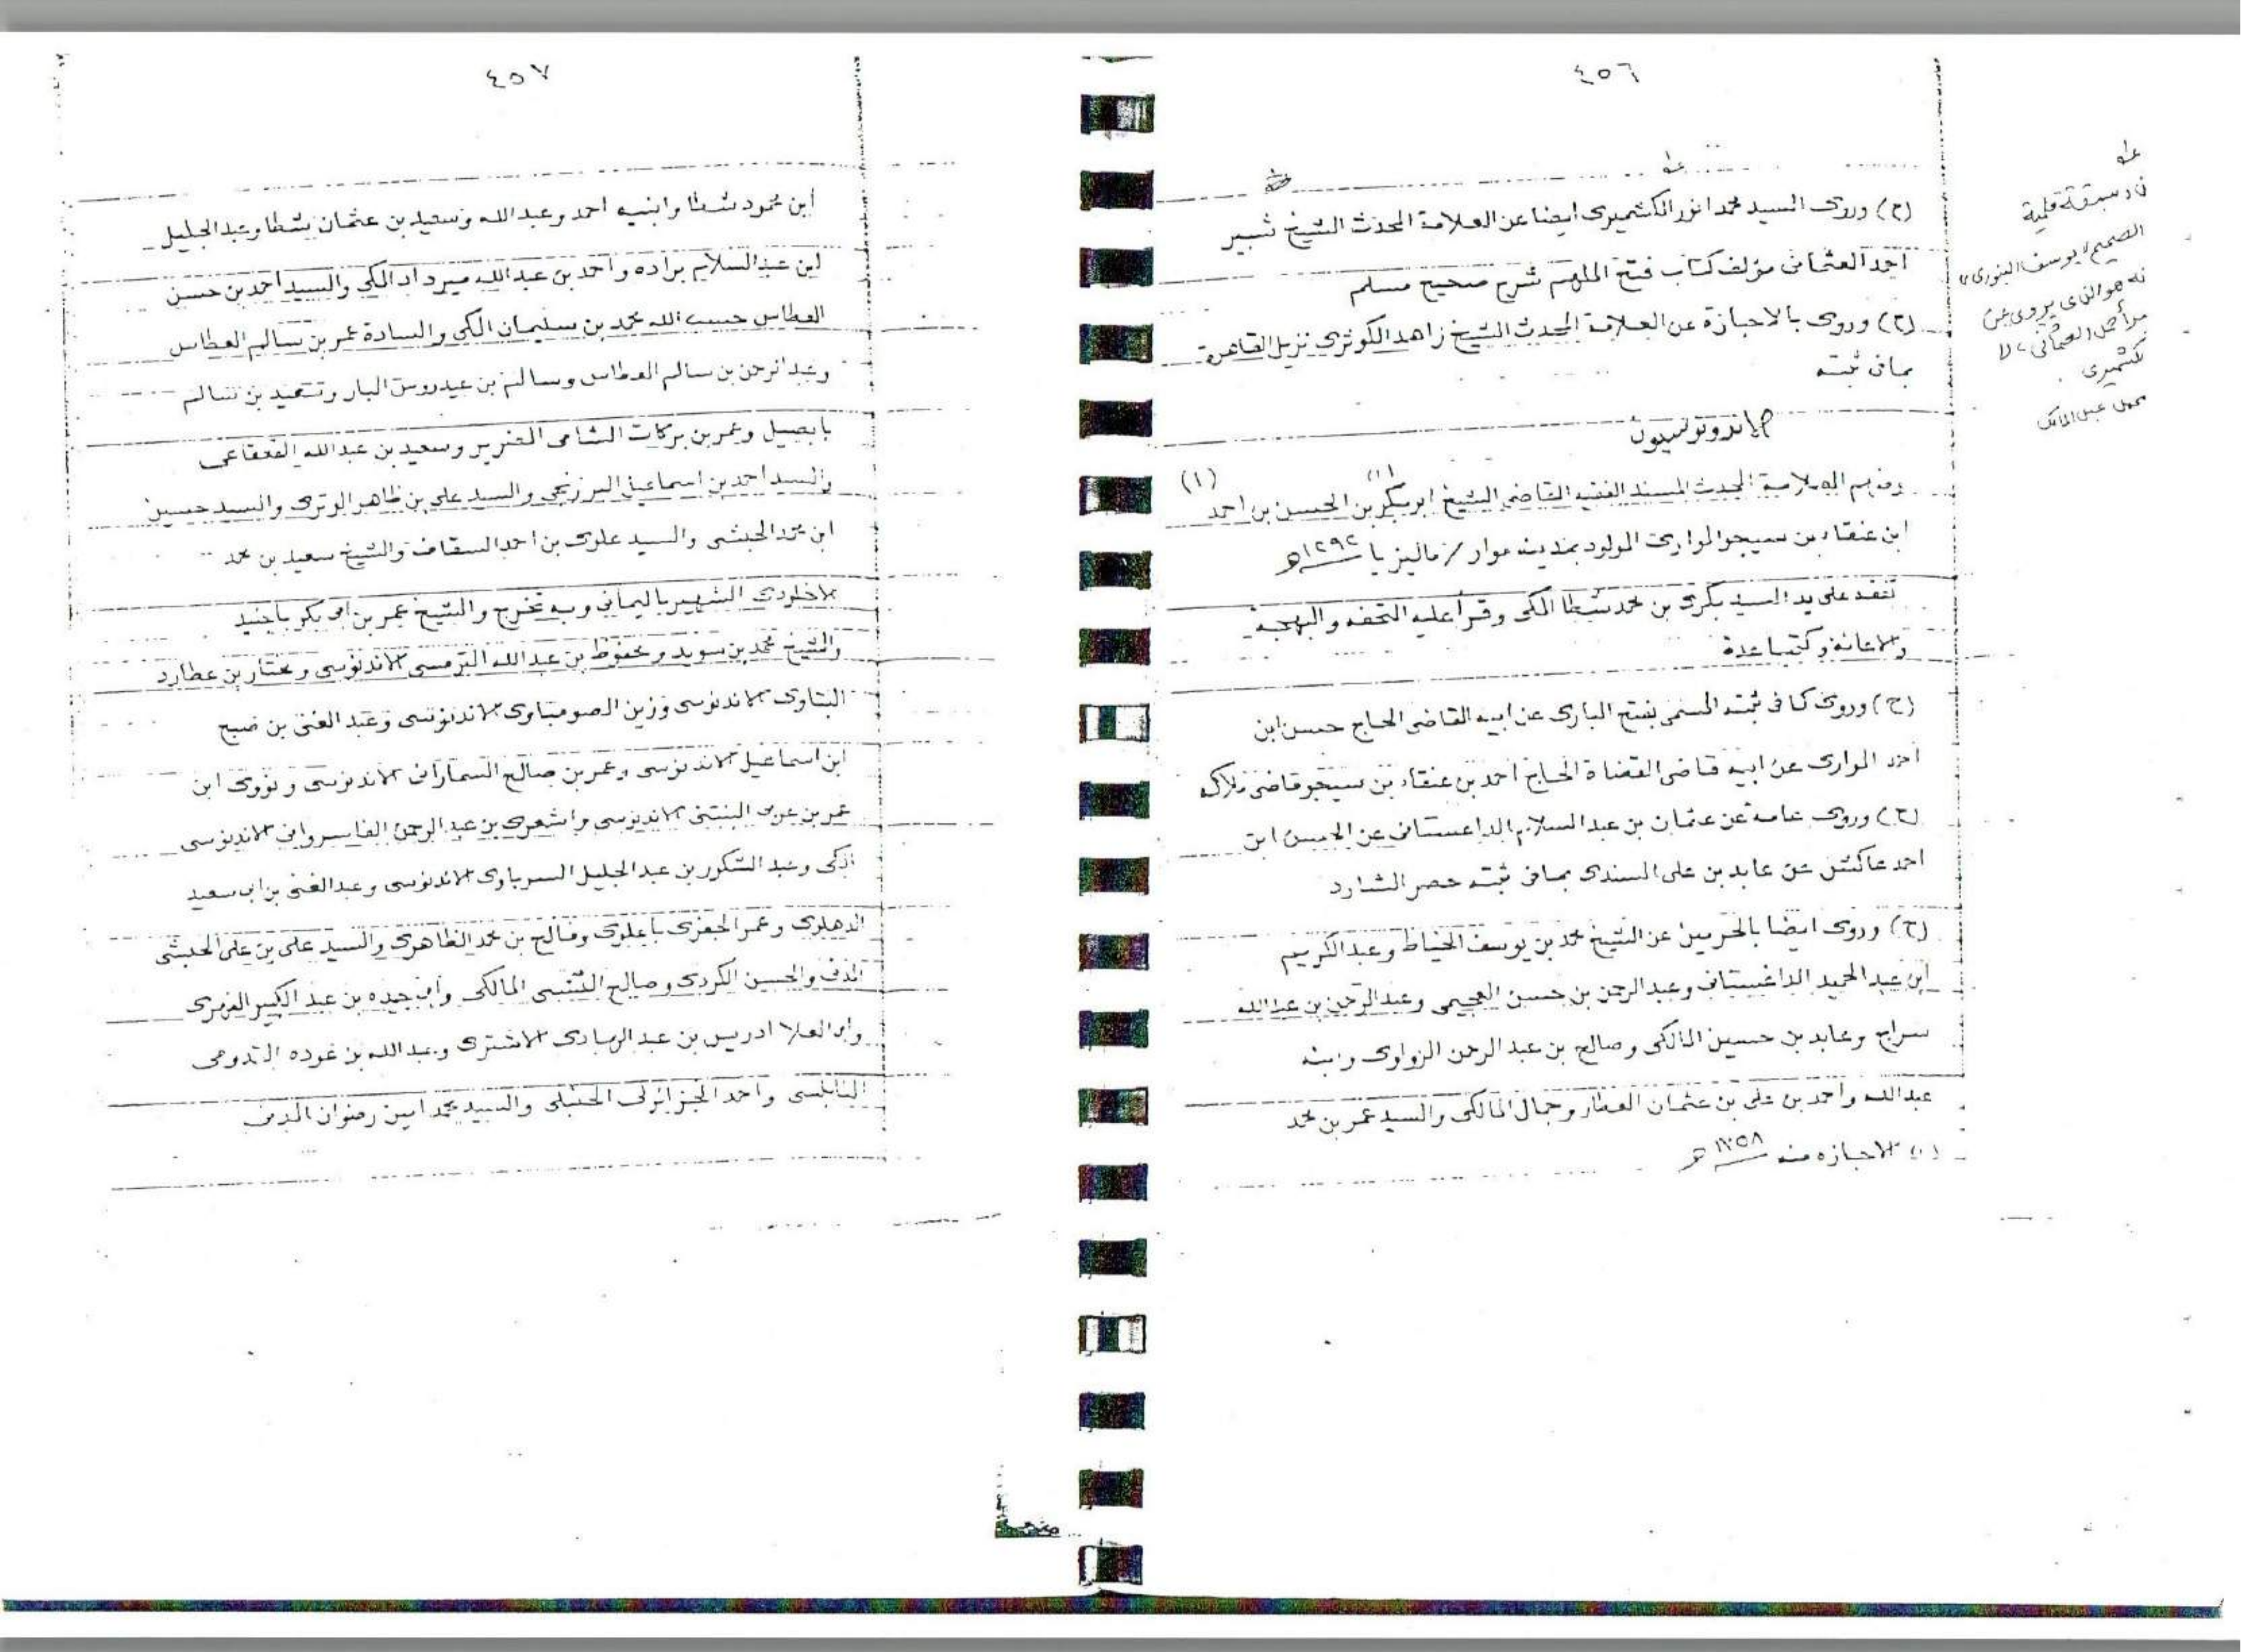 ٤٥٦
(ح) وروى السيد محمد انور الكشميرى ايضا عن العلامة المحدث الشيخ شبير
احمد العثمانى مؤلف كتاب فتح الملهم شرح صحيح مسلم
(ح) وروى بالاجازة عن العلامة المحدث الشيخ زاهد الكوثرى نزيل القاهرة
بمافى ثبته
الاندونوسيون
ومنهم العلامة المحدث المسند الفقيه القاضى الشيخ ابو بكر بن الحسن بن احمد (١)
ابن عنقاء بن سيجو الموارى المولود بمدينة موار / ماليزيا ١٢٩٢هـ
تفقه على يد السيد بكرى بن محمد شطا المكى وقرأ عليه التحفه والبهجه
والاعانة وكتبا عدة
(ح) وروى كما فى ثبته المسمى بفتح البارى عن ابيه القاضى الحاج حسن ابن
احمد الموارى عن ابيه قاضى القضاة الحاج احمد بن عنقاء بن سيجو قاضى ملاكه
(ح) وروى عامة عن عثمان بن عبد السلام الداغستانى عن الحسن ابن
احمد عاكش عن عابد بن على السندى بمافى ثبته حصر الشارد
(ح) وروى ايضا بالحرمين عن الشيخ محمد بن يوسف الخياط وعبد الكريم
ابن عبد الحميد الداغستانى وعبد الرحمن بن حسن العجيمى وعبد الرحمن بن عبد الله
سراج وعابد بن حسين المالكى وصالح بن عبد الرحمن الزواوى وابنه
عبد الله واحمد بن على بن عثمان العطار وجمال المالكى والسيد عمر بن محمد
(١) الاجازه منه ١٣٥٨هـ
سبقة قلمية
يوسف البنورى
هو الذى يروى عن
العثمانى
كشميرى
٤٥٧
ابن محمود شطا وابنيه احمد وعبد الله وسعيد بن عثمان شطا وعبد الجليل
ابن عبد السلام براده واحمد بن عبد الله ميرداد المكى والسيد احمد بن حسن
العطاس حسب الله محمد بن سليمان المكى والسادة عمر بن سالم العطاس
وعبد الرحمن بن سالم العطاس وسالم بن عيدروس البار وسعيد بن سالم
بابصيل وعمر بن بركات الشامى الضرير وسعيد بن عبد الله القعقاعى
والسيد احمد بن اسماعيل البرزنجى والسيد على بن ظاهر الوترى والسيد حسين
ابن محمد الحبشى والسيد علوى بن احمد السقاف والشيخ سعيد بن محمد
الشهير باليمانى وبه تخرج والشيخ عمر بن ابى بكر باجنيد
والشيخ محمد بن سويد ومحفوظ بن عبد الله الترمسى الاندنوسى ومختار بن عطارد
البتاوى الاندنوسى وزين الصومباوى الاندنوسى وعبد الغنى بن صبح
ابن اسماعيل الاندنوسى وعمر بن صالح السمارانى الاندنوسى ونووى ابن
عمر بن عربى البنتنى الاندنوسى واشعرى بن عبد الرحمن الفاسروانى الاندنوسى
المكى وعبد الشكور بن عبد الجليل السرباوى الاندنوسى وعبد الغنى بن ابى سعيد
الدهلوى وعمر الجفرى باعلوى وفالح بن محمد الظاهرى والسيد على بن على الحبشى
المدنى والحسن الكردى وصالح التنسى المالكى وابى جيده بن عبد الكبير الفهرى
وابى العلا ادريس بن عبد الهادى وعبد الله بن عوده القدومى
النابلسى واحمد الجزائرلى الحنبلى والسيد محمد امين رضوان المدنى